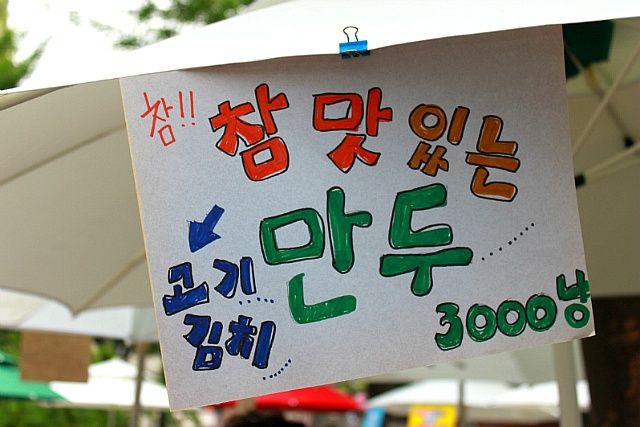 참!!
참 맛있는
만두......
고기...
김치...
3000냥